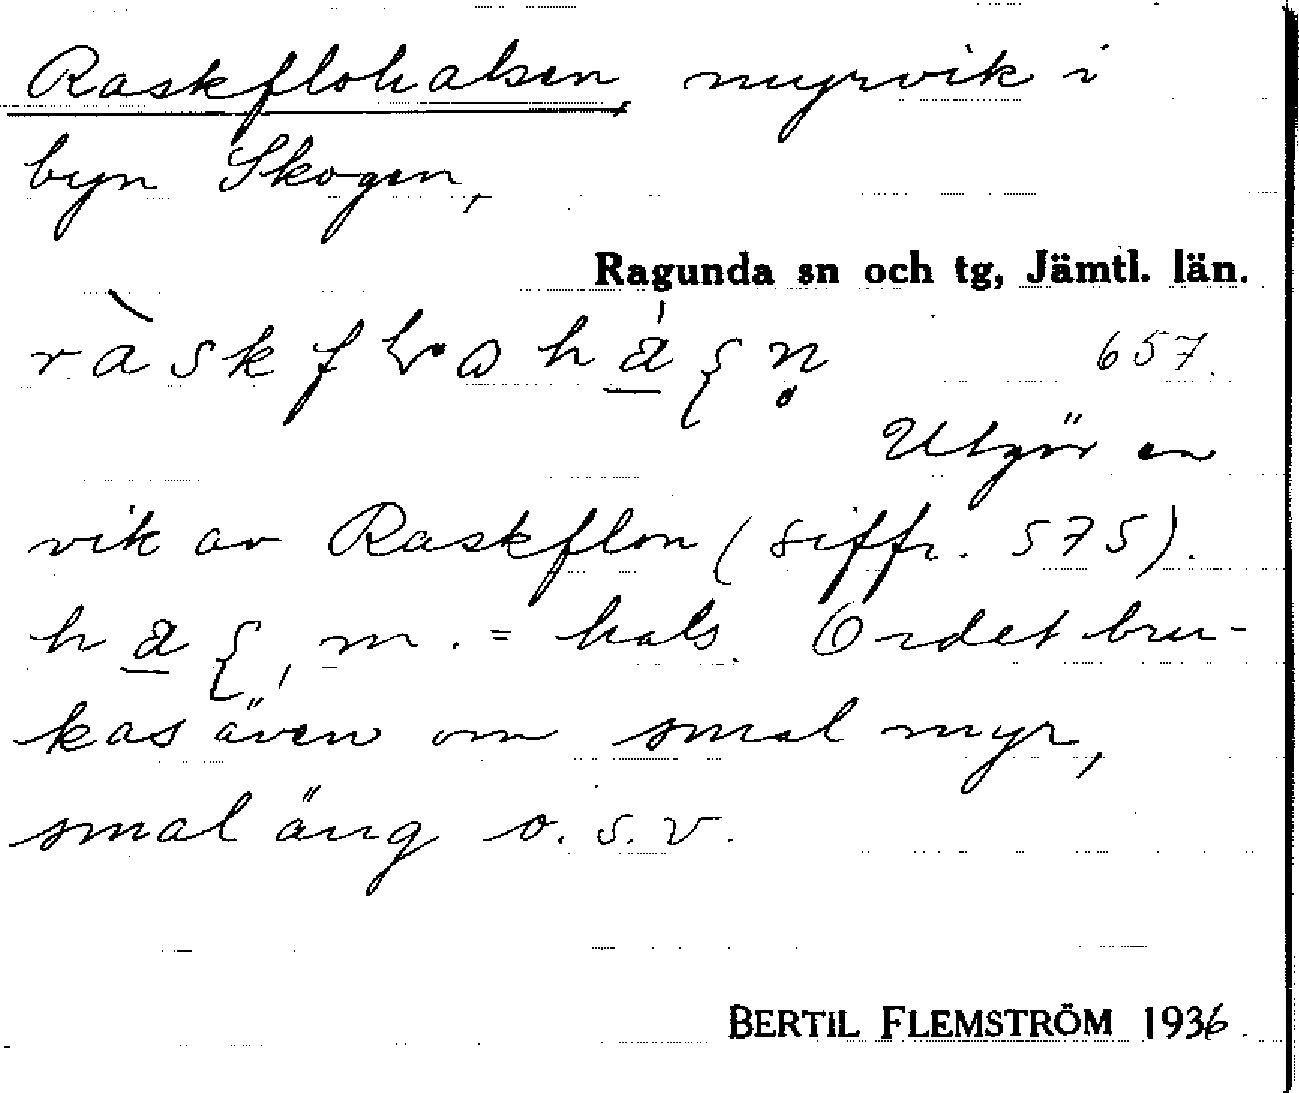 Raskflohalsen, myrvik i
byn Skogen,
Ragunda sn och tg, Jämtl. län.
657.
Utgör en
vik av Raskflon (siffr. 575).
m. = hals. Ordet bru-
kas även om smal myr,
smal äng o. s. v.
BERTIL FLEMSTRÖM 1936.